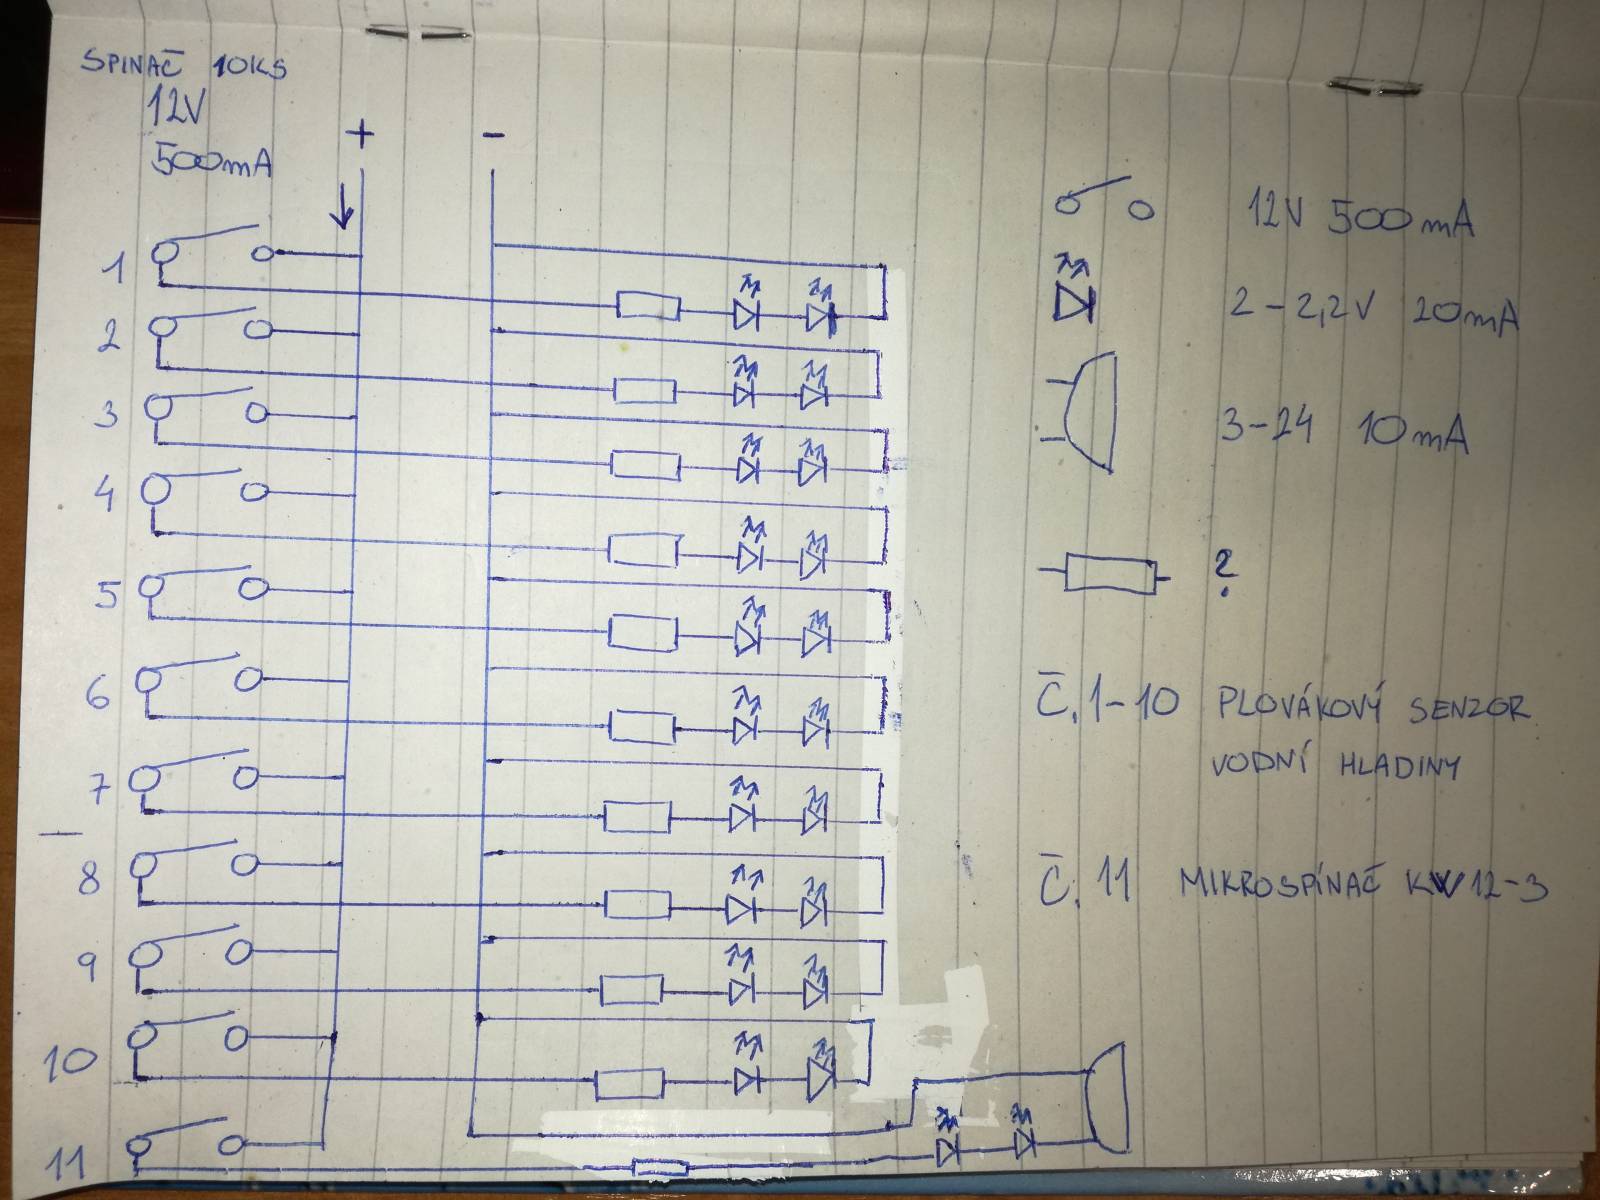 SPINAČ 10KS
12V
500mA
+ -
1
2
3
4
5
6
7
8
9
10
11
12V 500mA
2-2,2V 20mA
3-24 10mA
?
Č.1-10 PLOVÁKOVÝ SENZOR
VODNÍ HLADINY
Č. 11 MIKROSPÍNAČ KW12-3